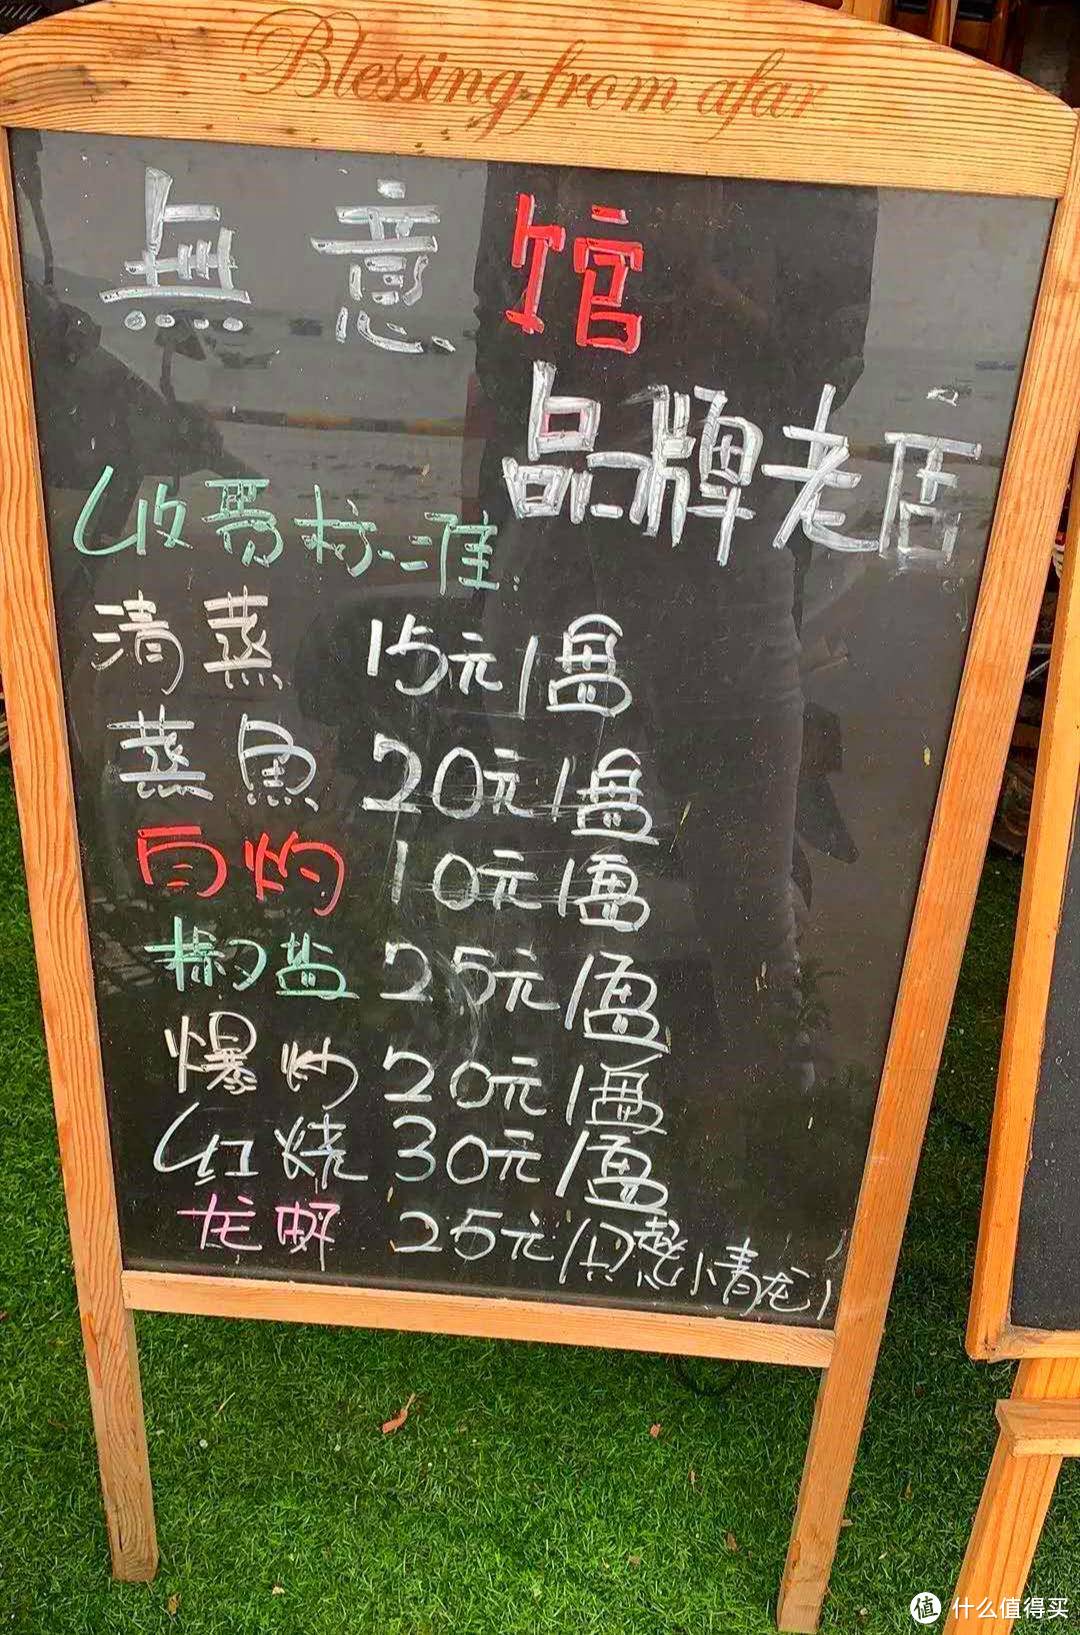 Blessing from afar
無意馆
品牌老店
收费标准:
清蒸 15元/盘
蒸鱼 20元/盘
白灼 10元/盘
椒盐 25元/盘
爆炒 20元/盘
红烧 30元/盘
龙虾 25元/
小青龙)
值 什么值得买